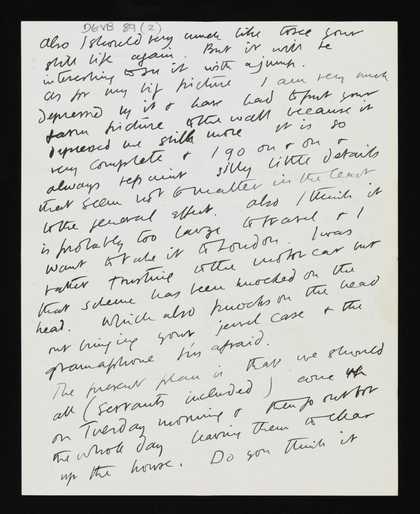 DGVB 89 (2)
also I should very much like to see your
still life again. But it will be
interesting to see it with a jump.
As for my big picture I am very much
depressed by it & have had to put your
farm picture to the wall because it
depressed me still more it is so
very complete & I go on & on &
always repaint silly little details
that seem not to matter in the least
to the general effect. Also I think it
is probably too large to travel & I
want to take it to London. I was
rather trusting to the motor car but
that scheme has been knocked on the
head. Which also knocks on the head
our bringing your jewel case & the
gramophone I'm afraid.
The present plan is that we should
all (servants included) come up
on Tuesday morning & then go out for
the whole day leaving them to clear
up the house. Do you think it